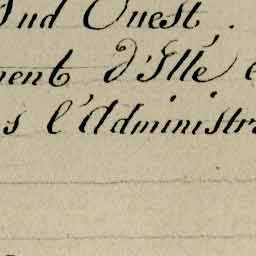 Sud Ouest.
ment d'Ille e
s l'Administr